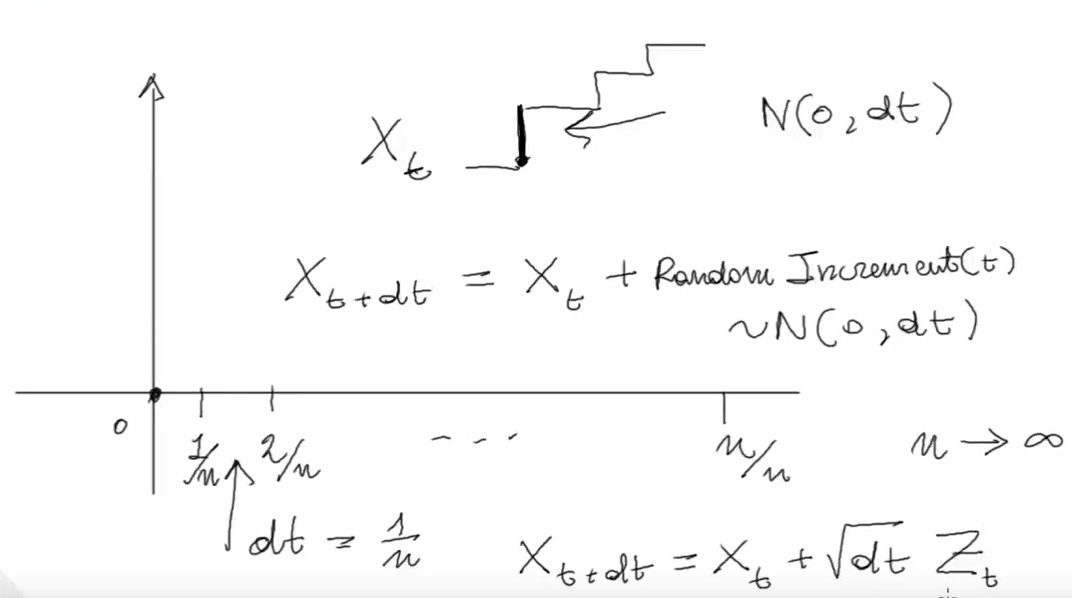 N(0, dt)
X_t
X_{t+dt} = X_t + Random Increment(t)
~N(0, dt)
0
1/n 2/n --- n/n n → ∞
dt = 1/n
X_{t+dt} = X_t + √dt Z_t